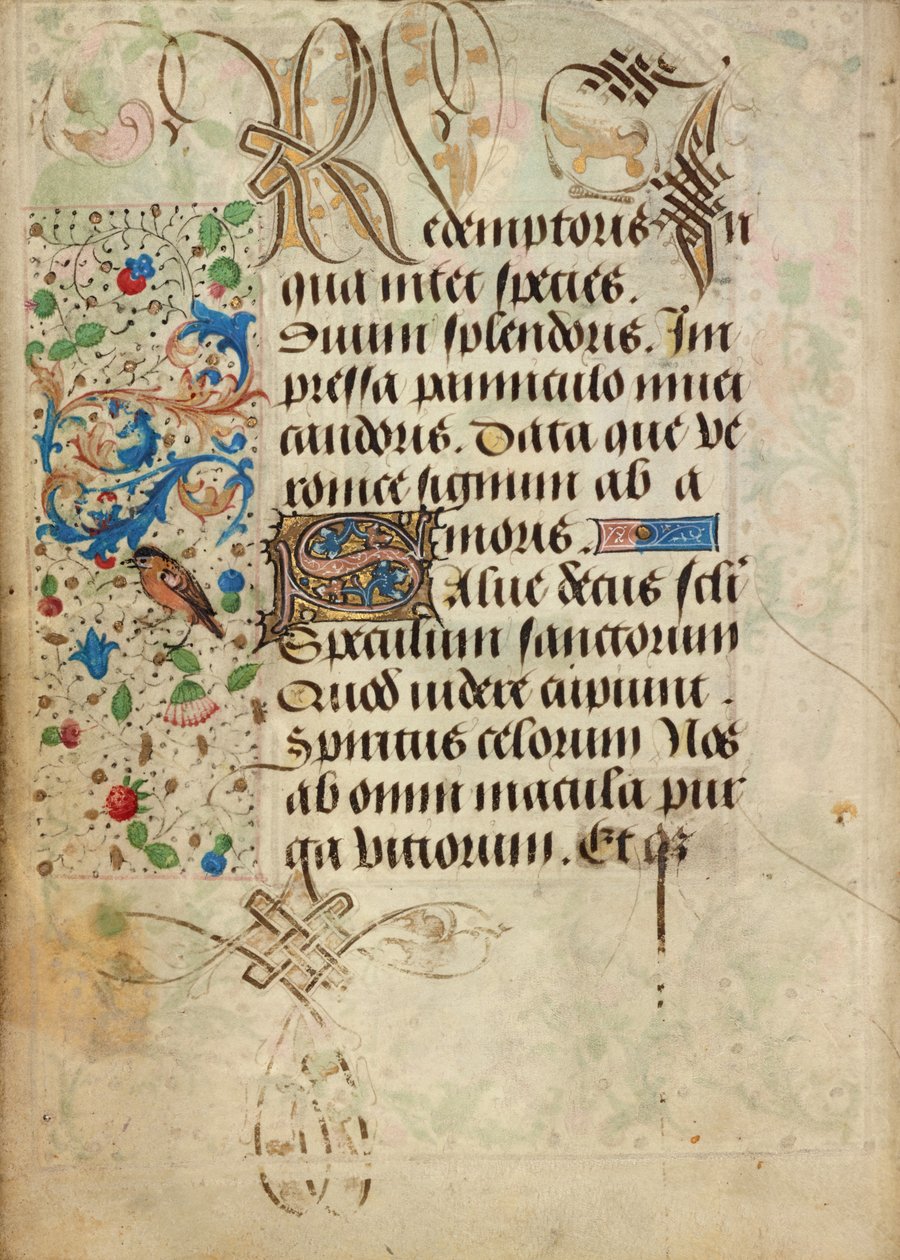 Redemptoris In
qua nitet species.
Diuini splendoris. Im
pressa panniculo niuei
candoris. Data que ve
ronice signum ab a
moris.
Salue decus scl̄i
Speculum sanctorum
Quod uidere cupiunt.
Spiritus celorum Nos
ab omni macula pur
ga vitiorum. Et